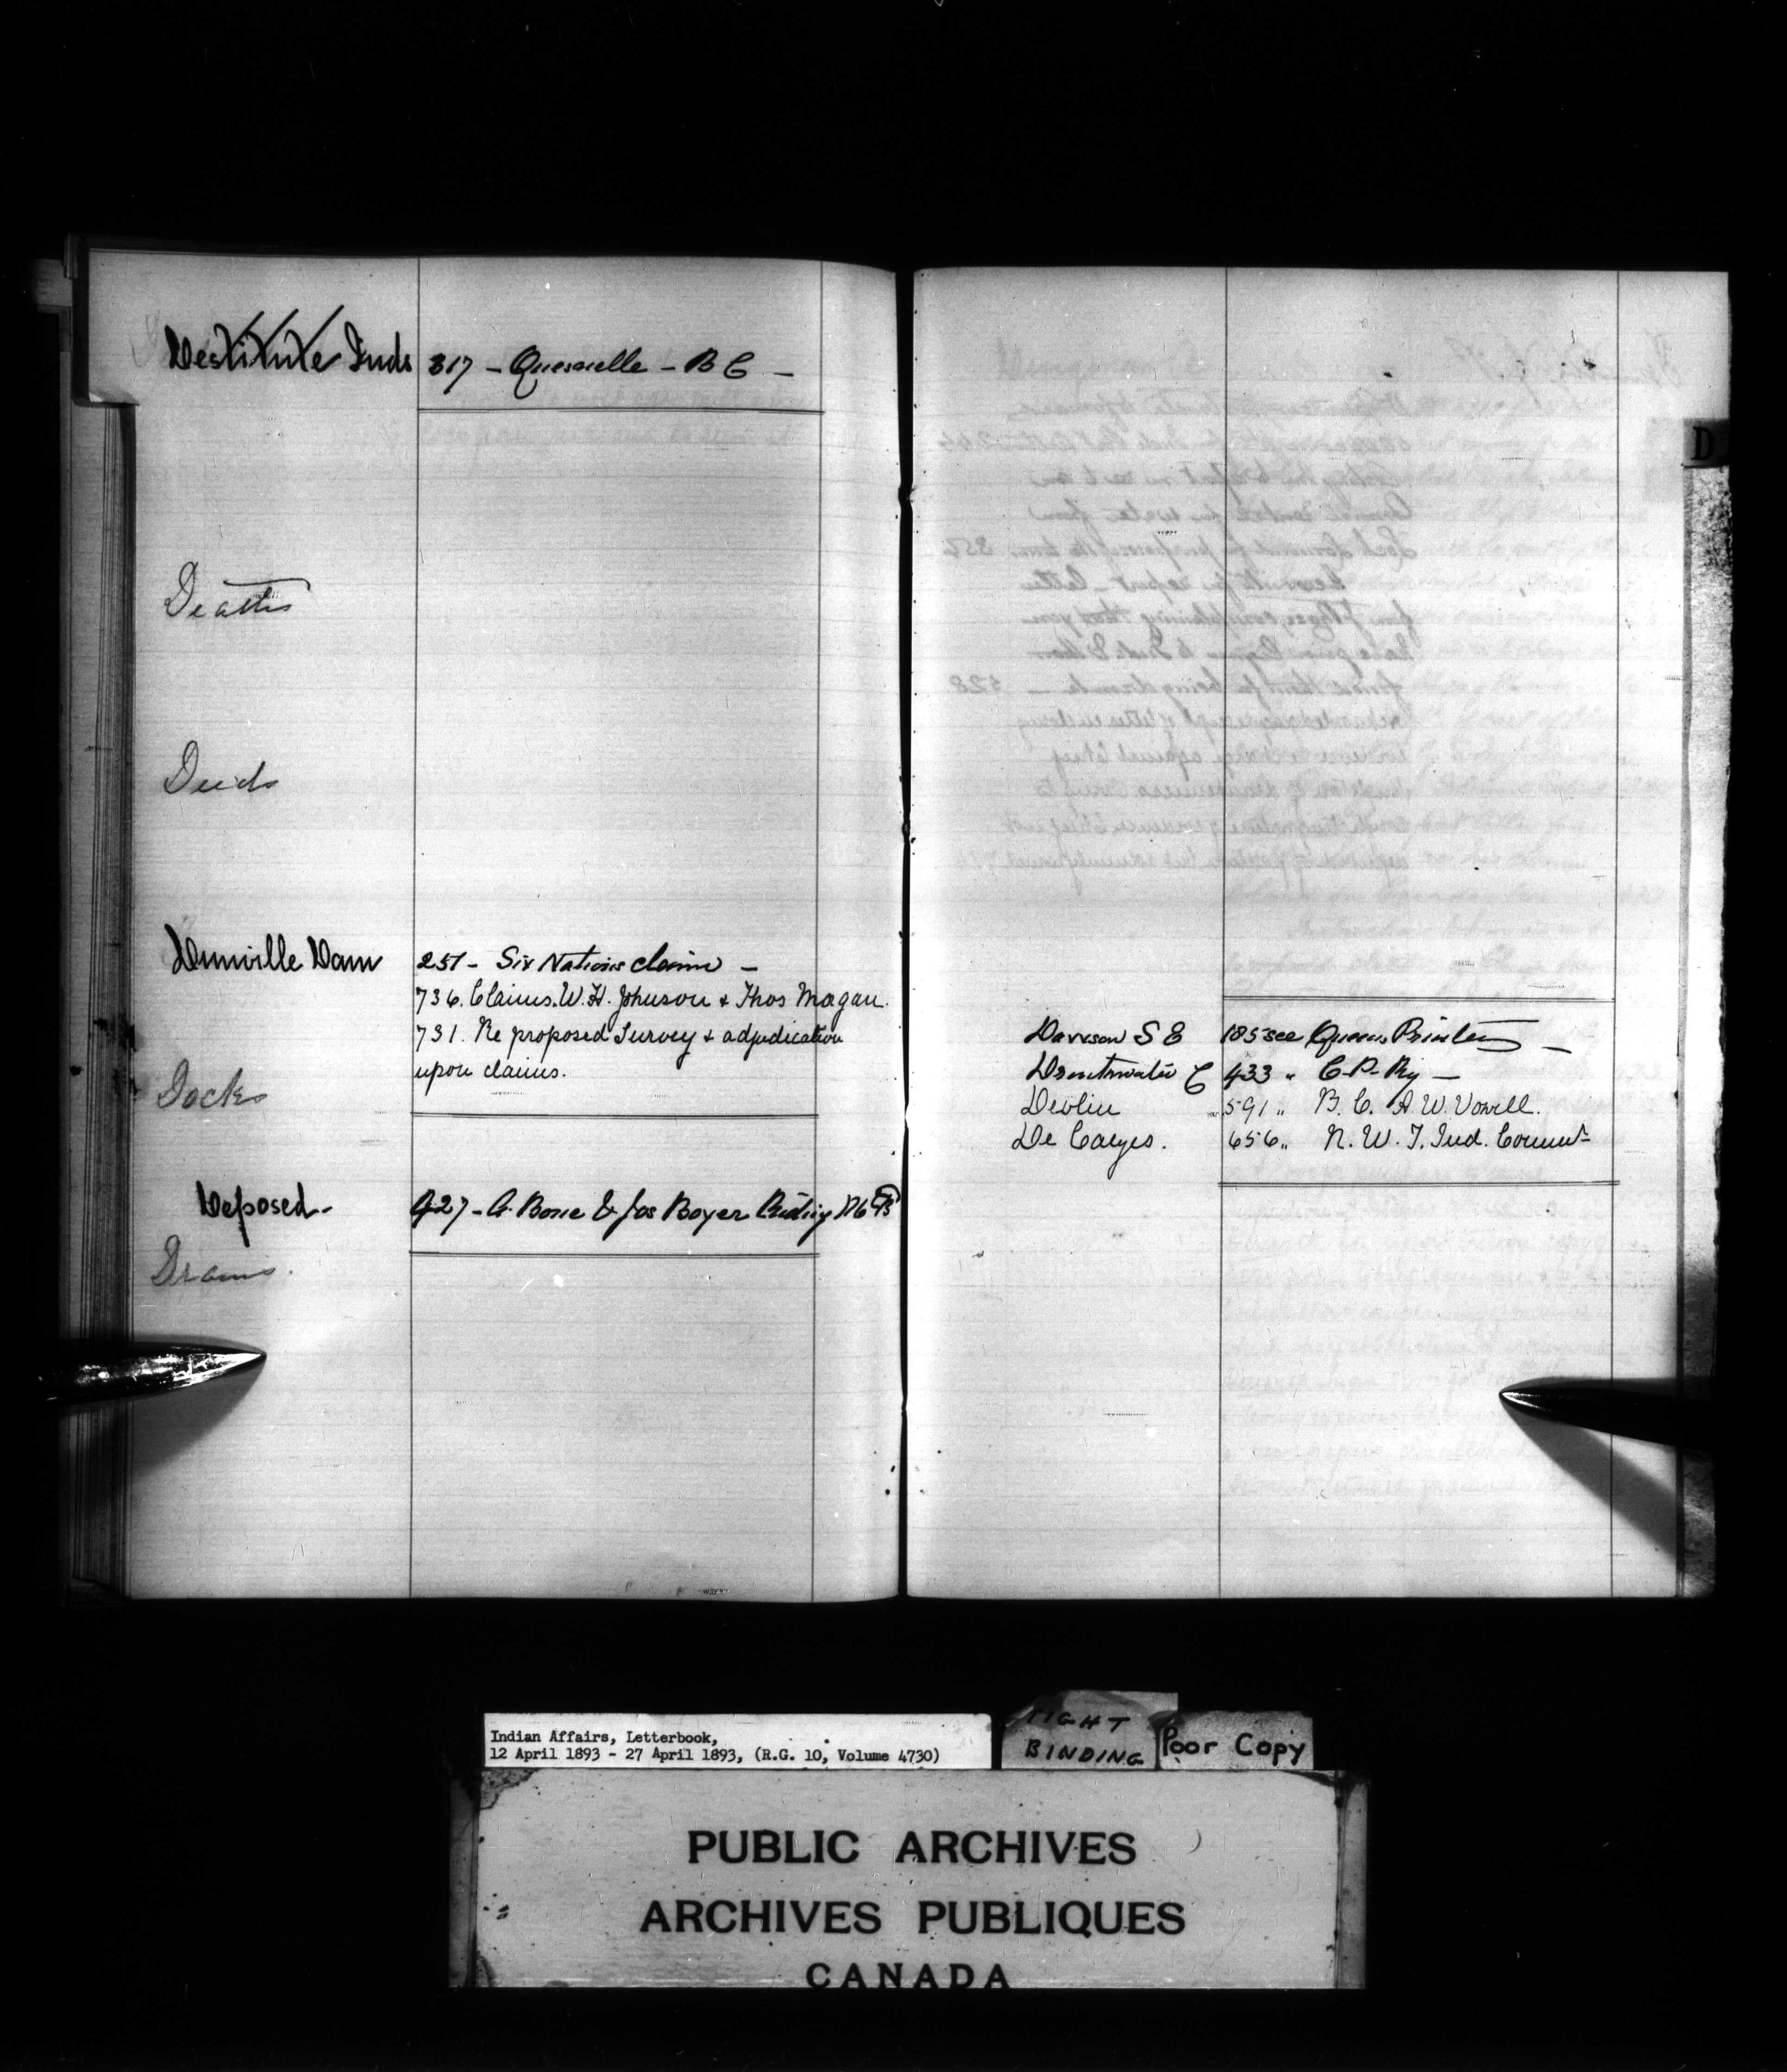 Destitute Inds 317 - Quesnelle - B C -
Deaths
Deeds
Dunville Dam 251 - Six Nations claim -
736. Claims. W. H. Johnson & Thos Magan.
731. Re proposed Survey & adjudication
upon claims.
Docks
Deposed - 427 - G. Bone & Jos Boyer
Drains.
D
Dawson S E 185 see Queens Printer -
C 433 " C. P. Ry -
Devlin 591 " B. C. A. W. Vowell.
De Cazes. 656 " N. W. T. Ind. Commr
Indian Affairs, Letterbook,
12 April 1893 - 27 April 1893, (R.G. 10, Volume 4730)
TIGHT
BINDING
Poor Copy
PUBLIC ARCHIVES
ARCHIVES PUBLIQUES
CANADA